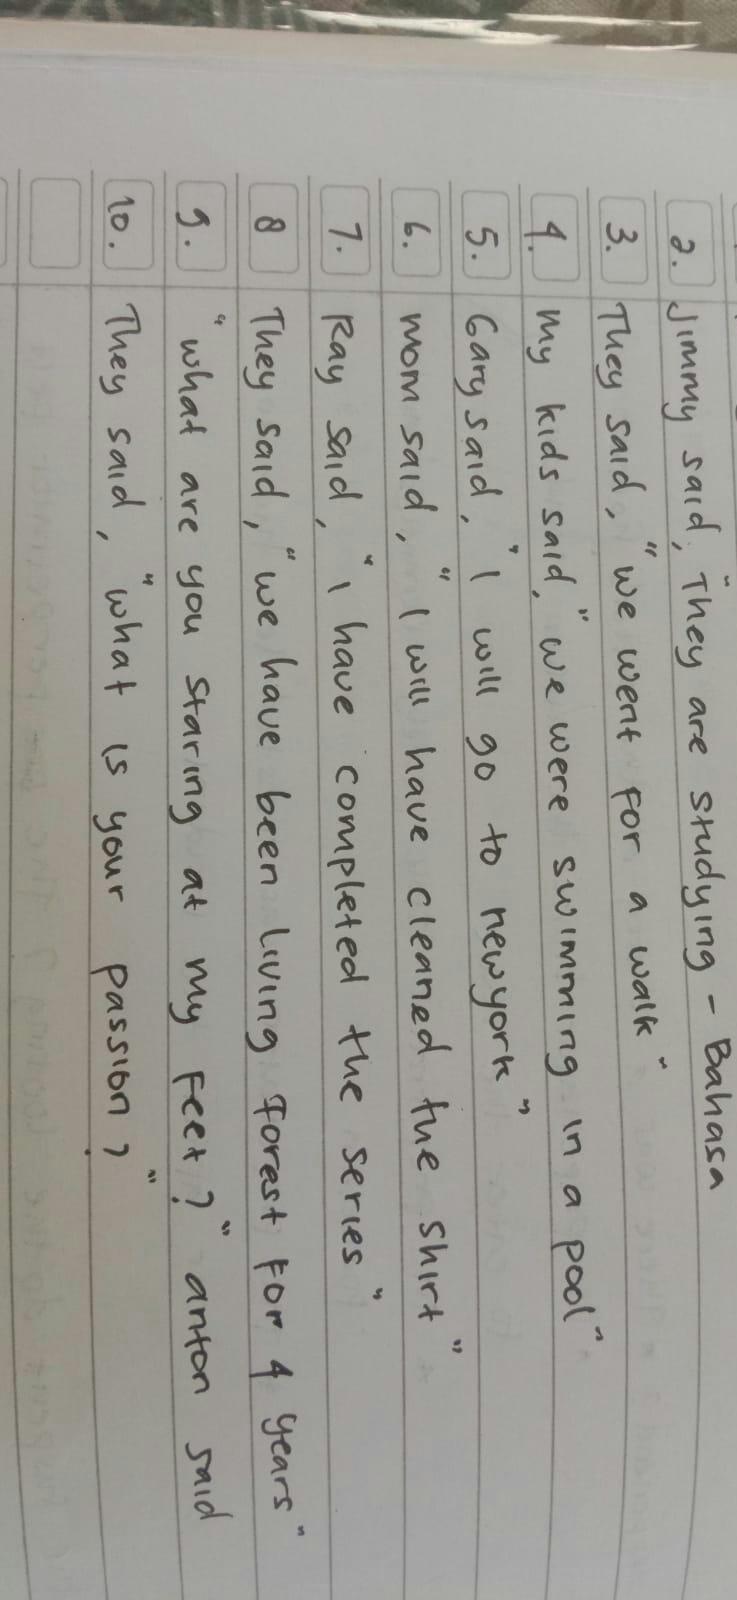 2. Jimmy said, "They are studying - Bahasa
3. They said, "we went for a walk"
4. my kids said, "we were swimming in a pool"
5. Gary said, "I will go to newyork"
6. mom said, "I will have cleaned the shirt"
7. Ray said, "I have completed the series"
8 They said, "we have been living forest for 4 years"
9. "what are you staring at my feet?" anton said
10. They said, "what is your passion?"